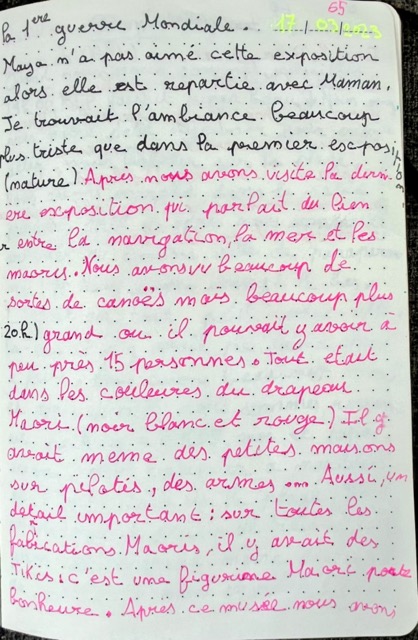 65
la 1ere guerre Mondiale. 17/03/2023
Maya n'a pas aimé cette exposition
alors elle est repartie avec Maman.
Je trouvait l'ambiance beaucoup
plus triste que dans la premier exposition
(nature). Après nous avons visité la derni
ère exposition qui parlait du lien
entre la navigation, la mer et les
maoris. Nous avons vu beaucoup de
sortes de canoës mais beaucoup plus
20h) grand ou il pouvait y avoir à
peu près 15 personnes. Tout etait
dans les couleures du drapeau
Maori (noir blanc et rouge) Il y
avait meme des petites maisons
sur pilotis, des armes ... Aussi, un
détail important : sur toutes les
fabrications Maoris, il y avait des
Tikis : c'est une figurine Maori porte
bonheure. Apres ce musée nous avons